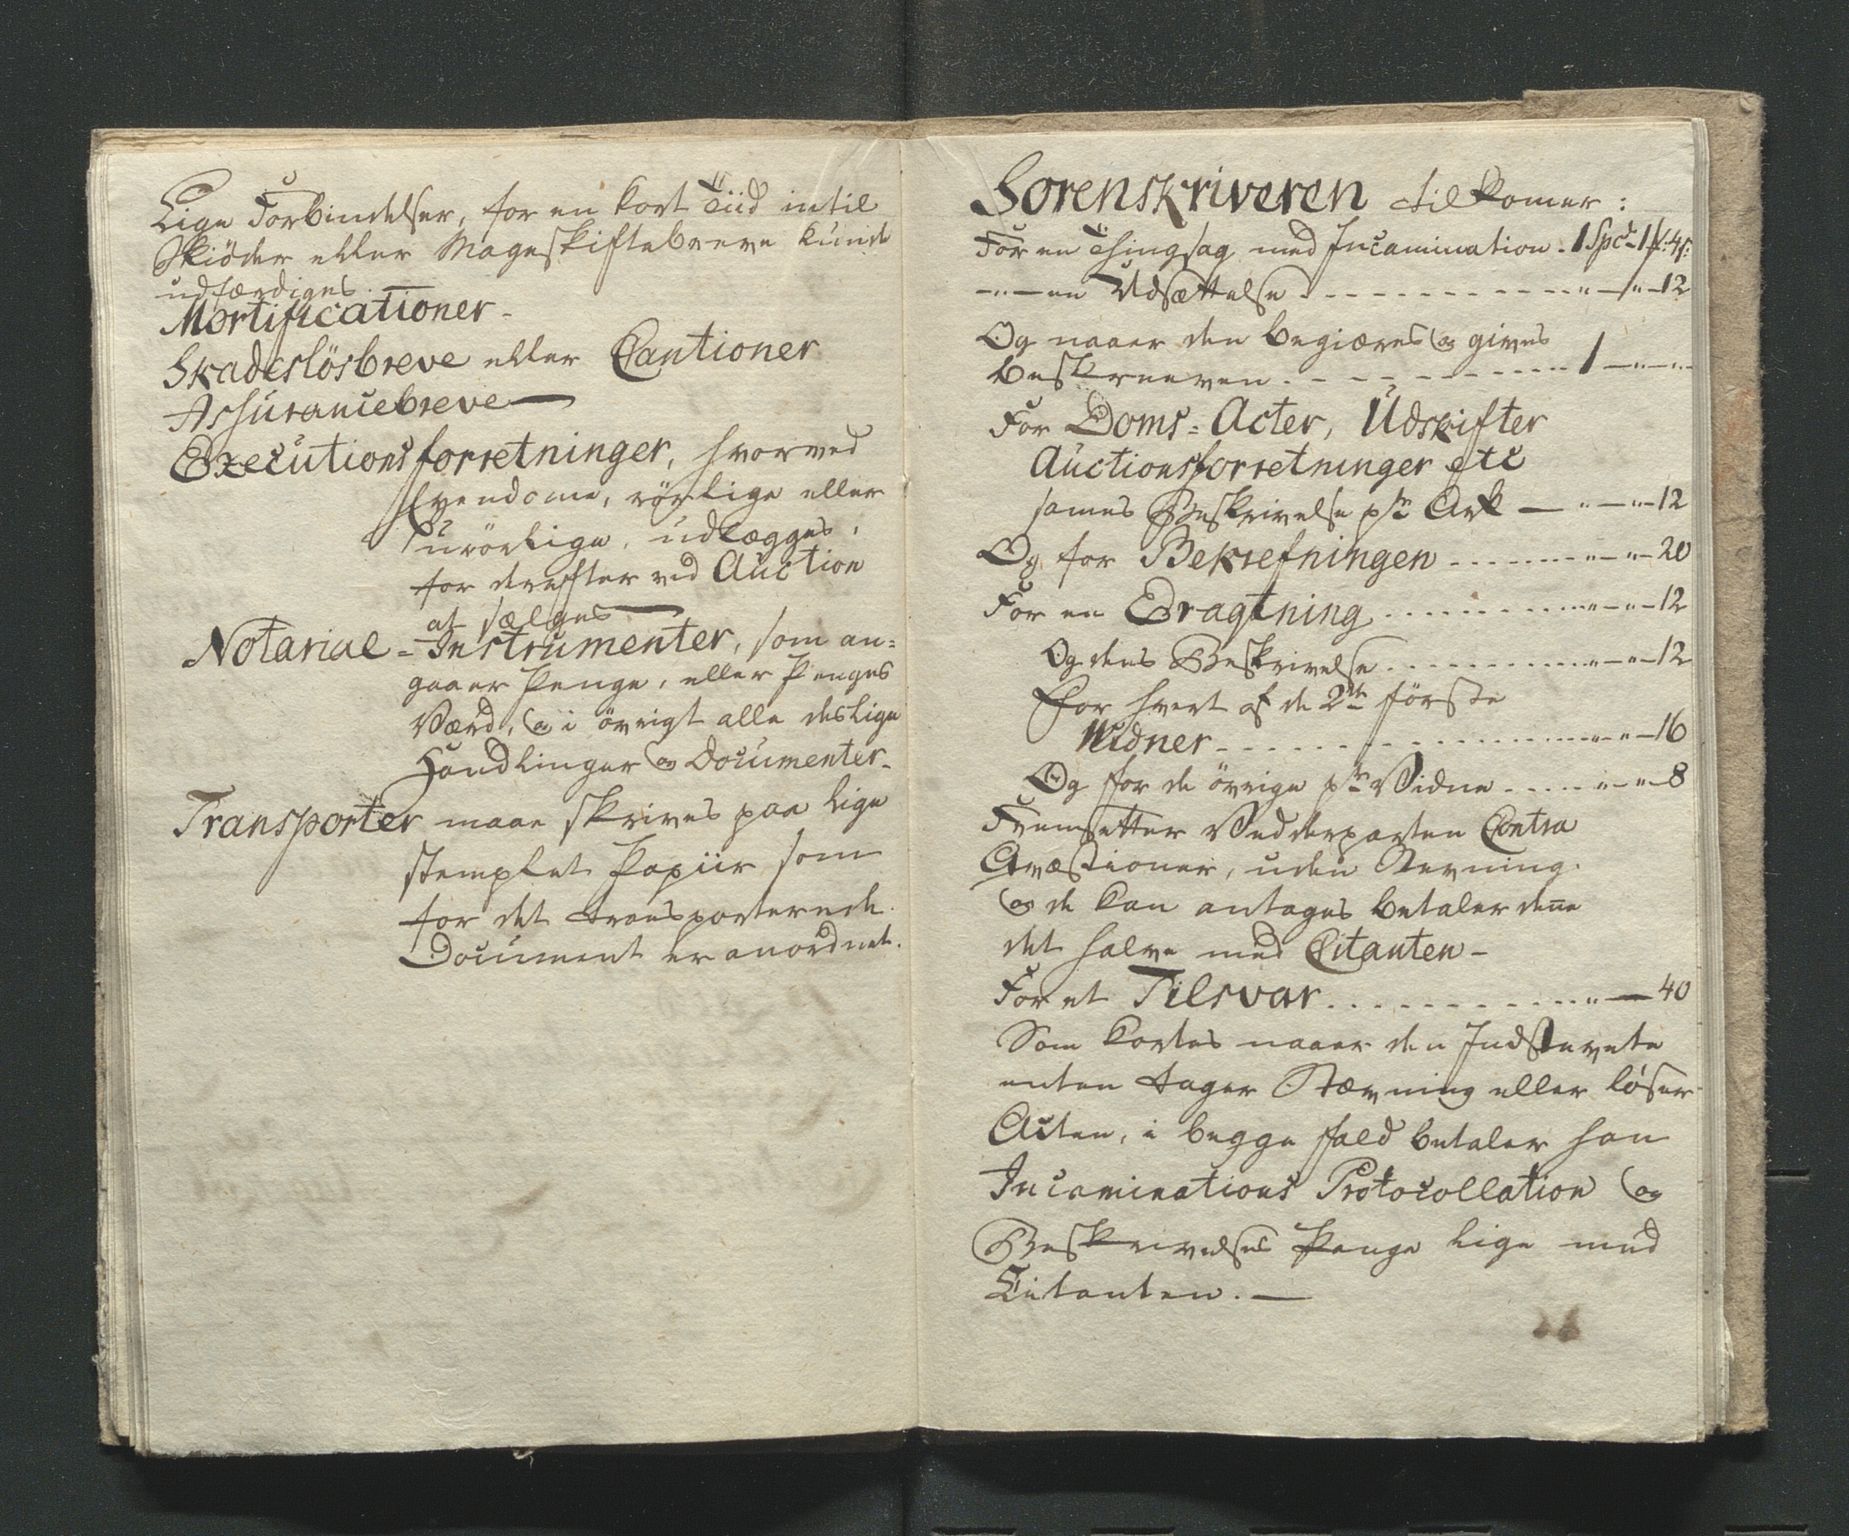 Lige Forbindelser, for en kort Tiid intil
Skiöder eller Mageskiftebreve kunde
udfærdiges. —
Mortificationer -
Skadeslösbreve eller Cautioner
Assurancebreve —
Executionsforretninger, hvorved
Eyendome, rörlige eller
urörlige, udlægges,
for derefter ved Auction
at sælges —
Notarial-Instrumenter, som an-
gaaer Penge, eller Penges
Værd, og i övrigt alle deslige
Handlinger og Documenter -
Transporter maae skrives paa lige
stemplet Papiir som
for det transporterede
Document er anordnet.
Sorenskriveren tilkomer:
For en Thingsag med Incamination . 1 Spd - 1 # 4 s:
— " — en Udsættelse . . . . . . . " — " — 12
Og naaer den begiæres og gives
beskreeven . - - - - - - - - 1 — " — "
For Doms-Acter, Udskrifter
Auctionsforretninger etc
sames Beskrivelse pr Ark — " — " — 12
Og for Bekræftningen . . . . . . " — " — 20
For en Eragtning . . . . . . . . " — " — 12
Og dens Beskrivelse . . . . . . . " — " — 12
For hvert af de 2de förste
Widner . . . . . . . . . . " — " — 16
Og for de övrige pr Vidne . . . . " — " — 8
Fremsetter Vedderparten Contra
Qvæstioner, uden Stevning
og de kan antages betaler dene
det halve med Citanten -
For et Tilsvar . . . . . . . . . " — 40
Som kortes naaer den Indstevnte
enten tager Stævning eller löser
Acten, i begge fald betaler han
Incaminations Protocollation og
Beskrivelses Penge lige med
Citanten. —